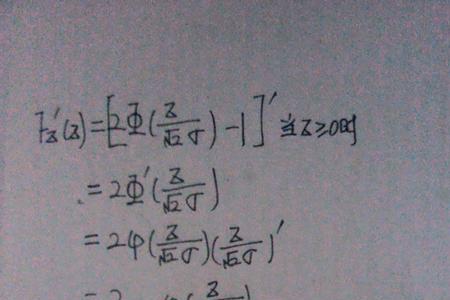 F_Z'(z) = [2Φ(z/√2σ) - 1]' 当z≥0时
= 2Φ'(z/√2σ)
= 2φ(z/√2σ)(z/√2σ)'